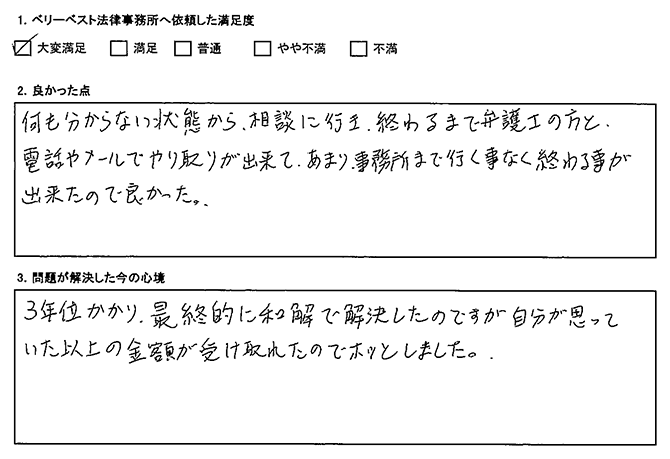 1. ベリーベスト法律事務所へ依頼した満足度
☑ 大変満足 □ 満足 □ 普通 □ やや不満 □ 不満
2. 良かった点
何も分からない状態から、相談に行き、終わるまで弁護士の方と、
電話やメールでやり取りが出来て、あまり、事務所まで行く事なく終わる事が
出来たので良かった。
3. 問題が解決した今の心境
3年位かかり、最終的に和解で解決したのですが自分が思って
いた以上の金額が受け取れたのでホッとしました。